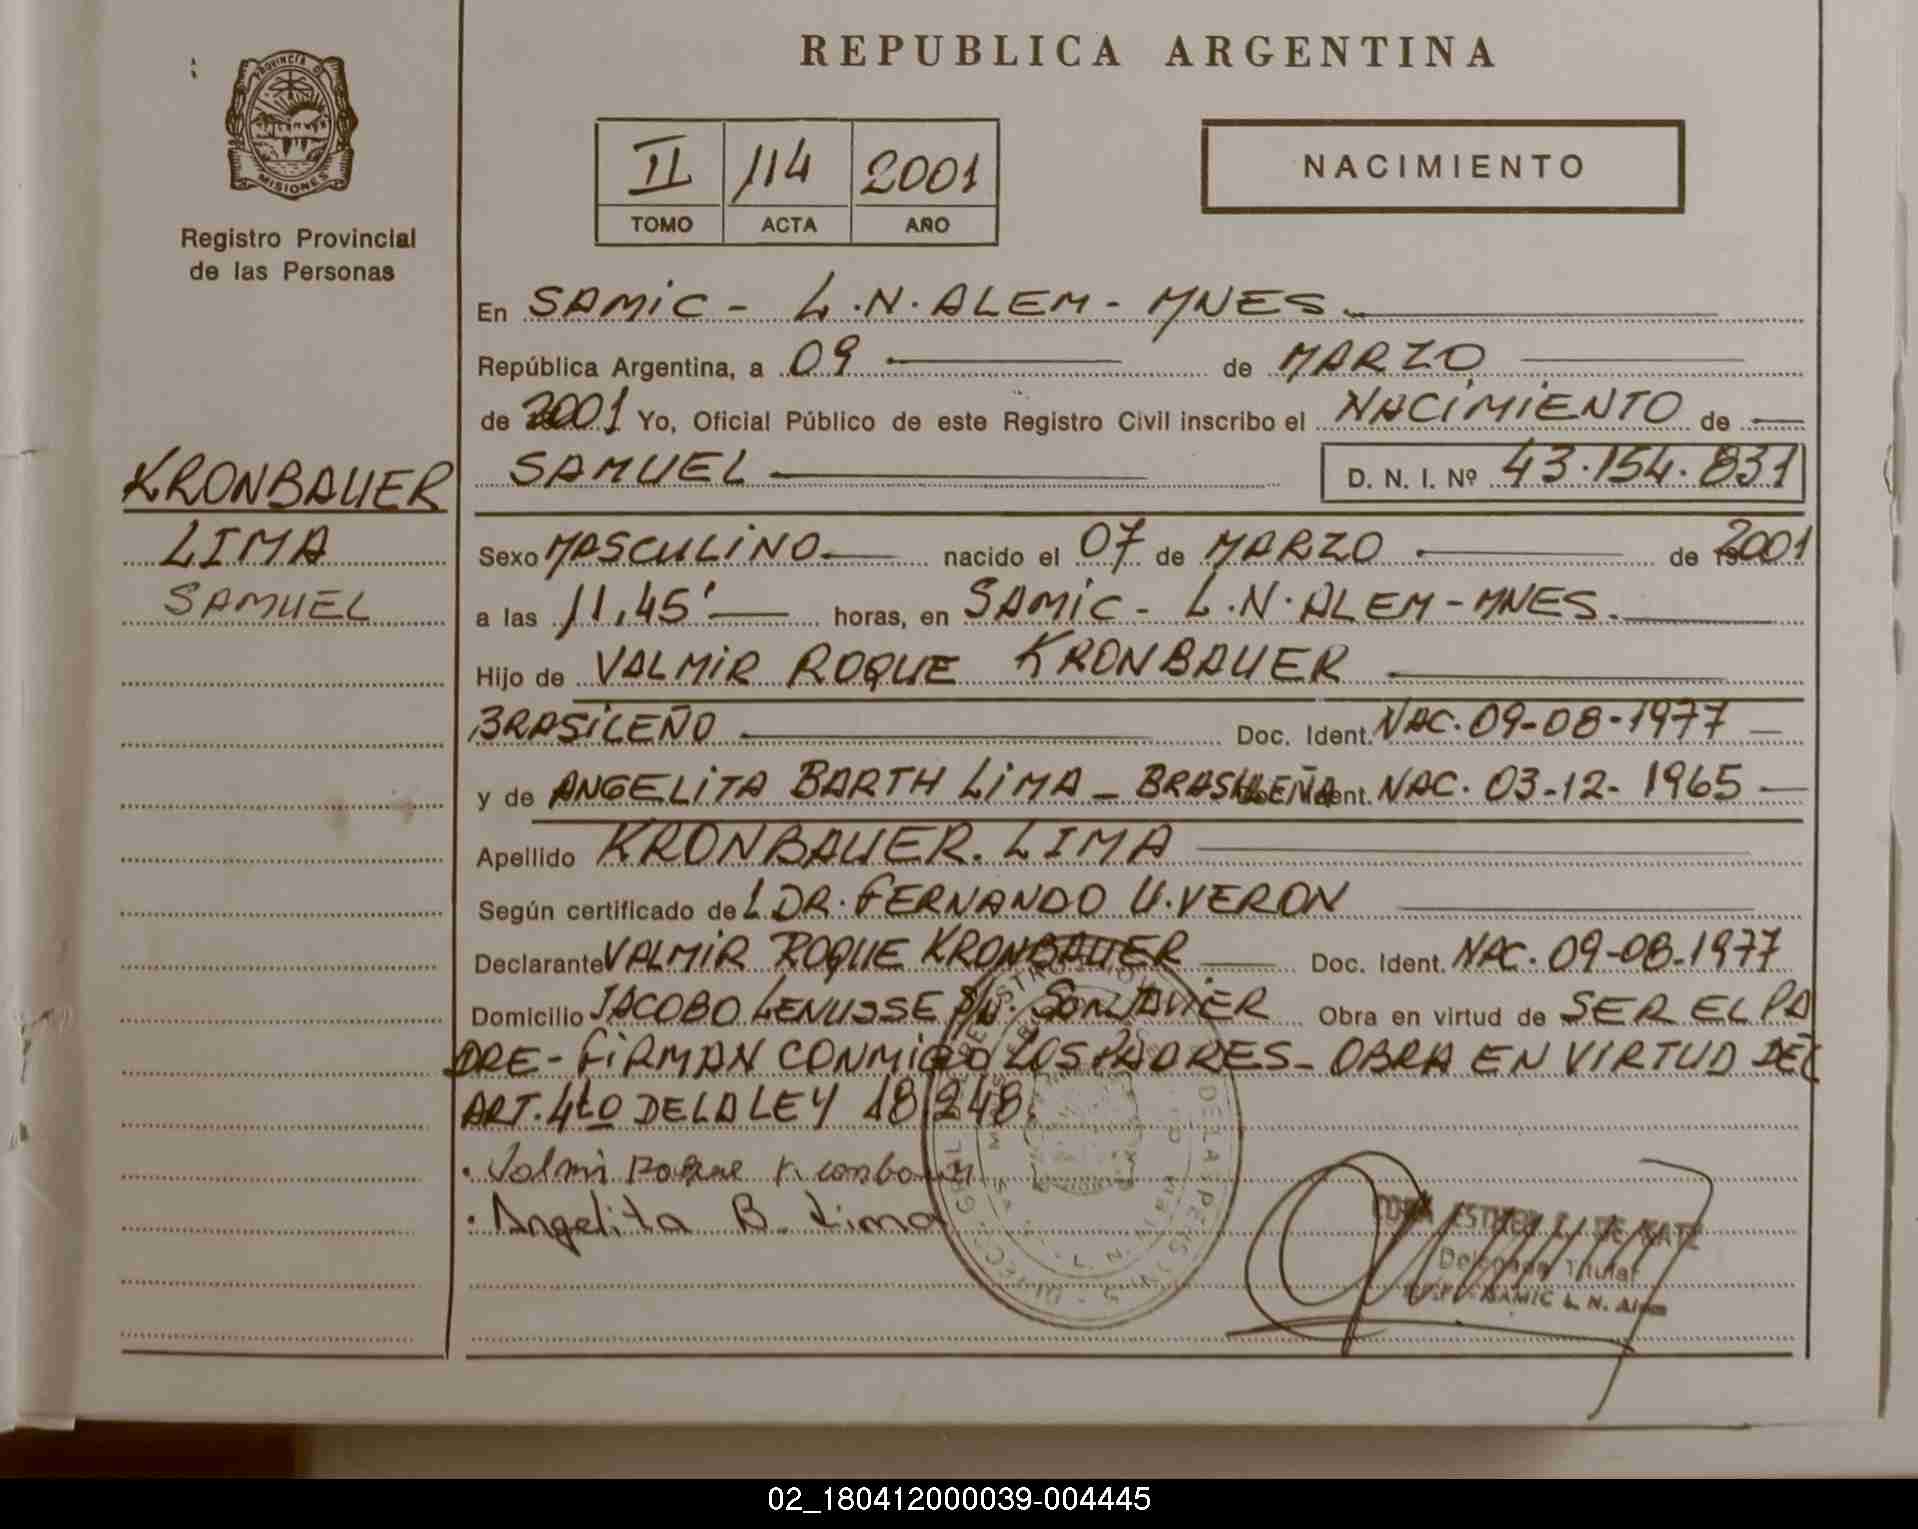 REPUBLICA ARGENTINA
PROVINCIA DE
MISIONES
Registro Provincial
de las Personas
II 114 2001
TOMO ACTA AÑO
NACIMIENTO
En SAMIC - L.N. ALEM - MNES
República Argentina, a 09 de MARZO
de 2001 Yo, Oficial Público de este Registro Civil inscribo el NACIMIENTO de
SAMUEL D. N. I. Nº 43.154.831
KRONBAUER
LIMA
SAMUEL
Sexo MASCULINO nacido el 07 de MARZO de 2001
a las 11,45' horas, en SAMIC - L.N. ALEM - MNES.
Hijo de VALMIR ROQUE KRONBAUER
BRASILEÑO Doc. Ident. NAC. 09-08-1977
y de ANGELITA BARTH LIMA - BRASILEÑA Doc. Ident. NAC. 03-12-1965
Apellido KRONBAUER. LIMA
Según certificado del DR. FERNANDO U. VERON
Declarante VALMIR ROQUE KRONBAUER Doc. Ident. NAC. 09-08-1977
Domicilio JACOBO S/N. JAVIER Obra en virtud de SER EL PA
DRE - FIRMAN CONMIGO LOS PADRES - OBRA EN VIRTUD DEL
ART. 4to DE LA LEY 18.248.
Valmir Roque Kronbauer
Angelita B. Lima
ESTHER DE
Delegada Titular
SAMIC L. N. Alem
02_180412000039-004445